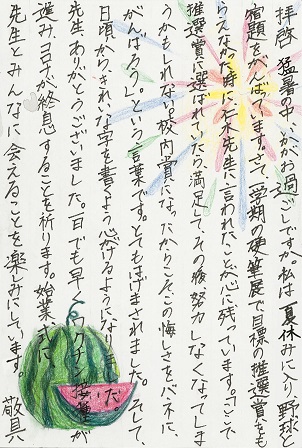 拝啓 猛暑の中、いかがお過ごしですか。私は、夏休みに入り野球と
宿題をがんばっています。さて、一学期の硬筆展で目標の推選賞をも
らえなかった時に、先生に言われたことが心に残っています。「ここで
推選賞に選ばれていたら、満足して、その後努力しなくなってしま
うかもしれない。校内賞になったからこそこの悔しさをバネに、
がんばろう。」という言葉です。とてもはげまされました。そして、
日頃から、きれいな字を書くよう心がけるようになりました。
先生、ありがとうございました。一日でも早くワクチン接種が
進み、コロナが終息することを祈ります。始業式に
先生とみんなに会えることを楽しみにしています。 敬具